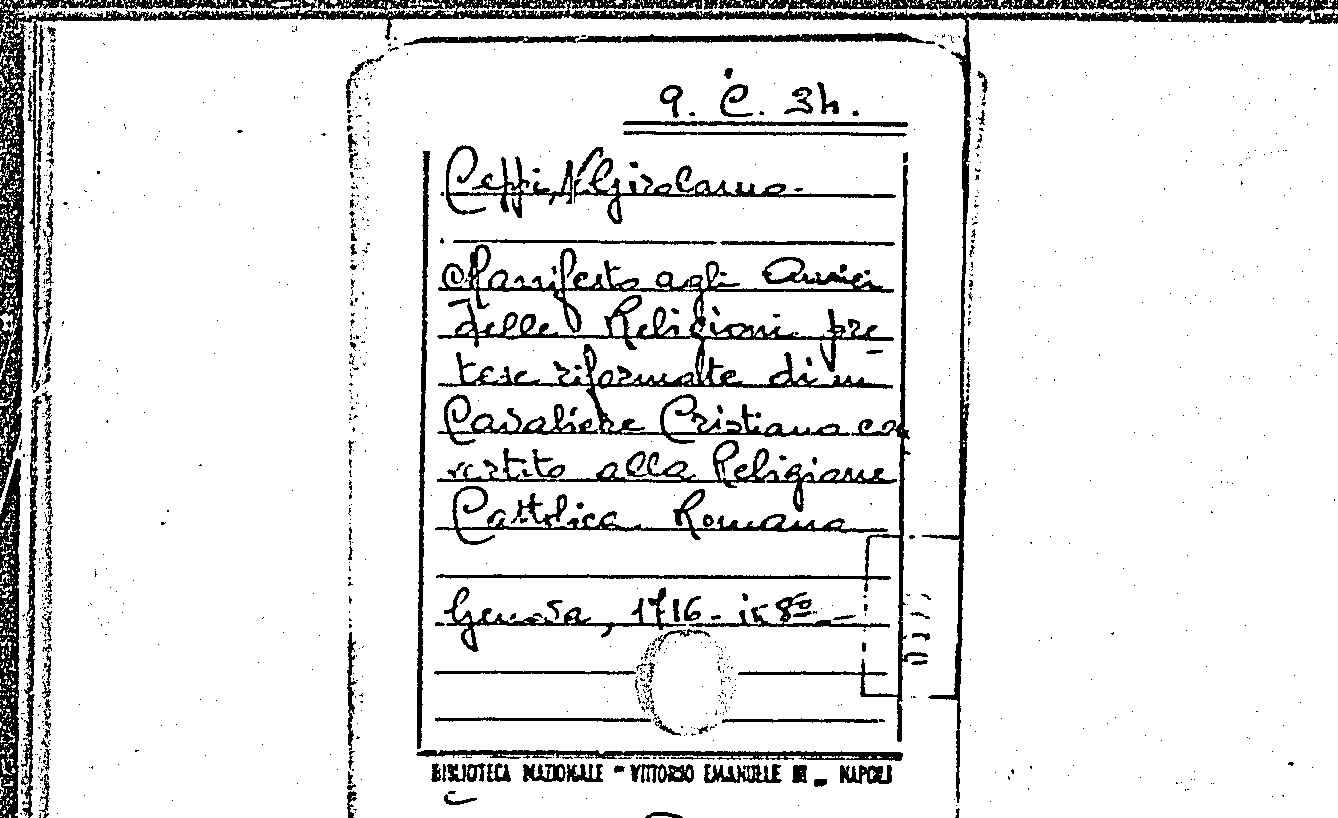 9. C. 34.
Ceppi, N. Girolamo.
Manifesto agli Amici
delle Religioni pre
tese riformate di un
Cavaliere Cristiano con
vertito alla Religione
Cattolica Romana
Genova, 1716 - in 8º -
BIBLIOTECA NAZIONALE - VITTORIO EMANUELE III - NAPOLI